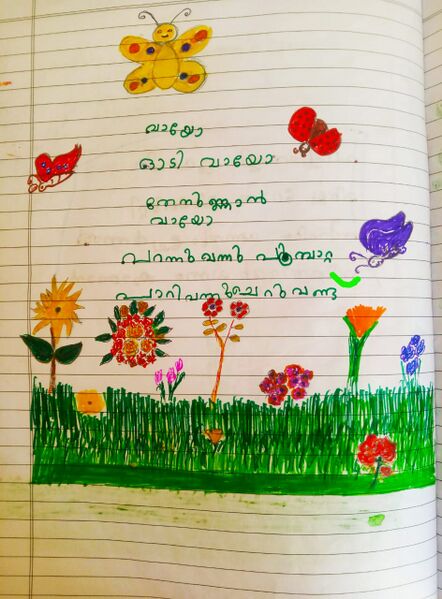 വായോ
ഓടി വായോ
തേനുണ്ണാൻ
വായോ
പറന്നുവന്നു പൂമ്പാറ്റ
പാറിവന്നുചെറുവണ്ടു